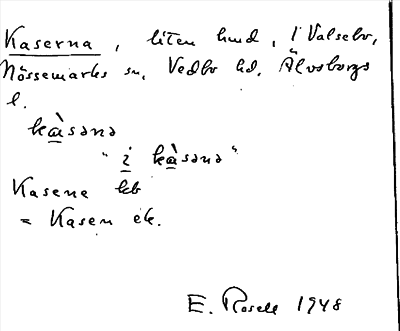 Kaserna, liten hmd, i Valsebo,
Nössemarks sn, Vedbo hd, Älvsborgs
l.
kàsənə
"i kàsənə"
Kasena kb
= Kasen ek.
E. Rosell 1948